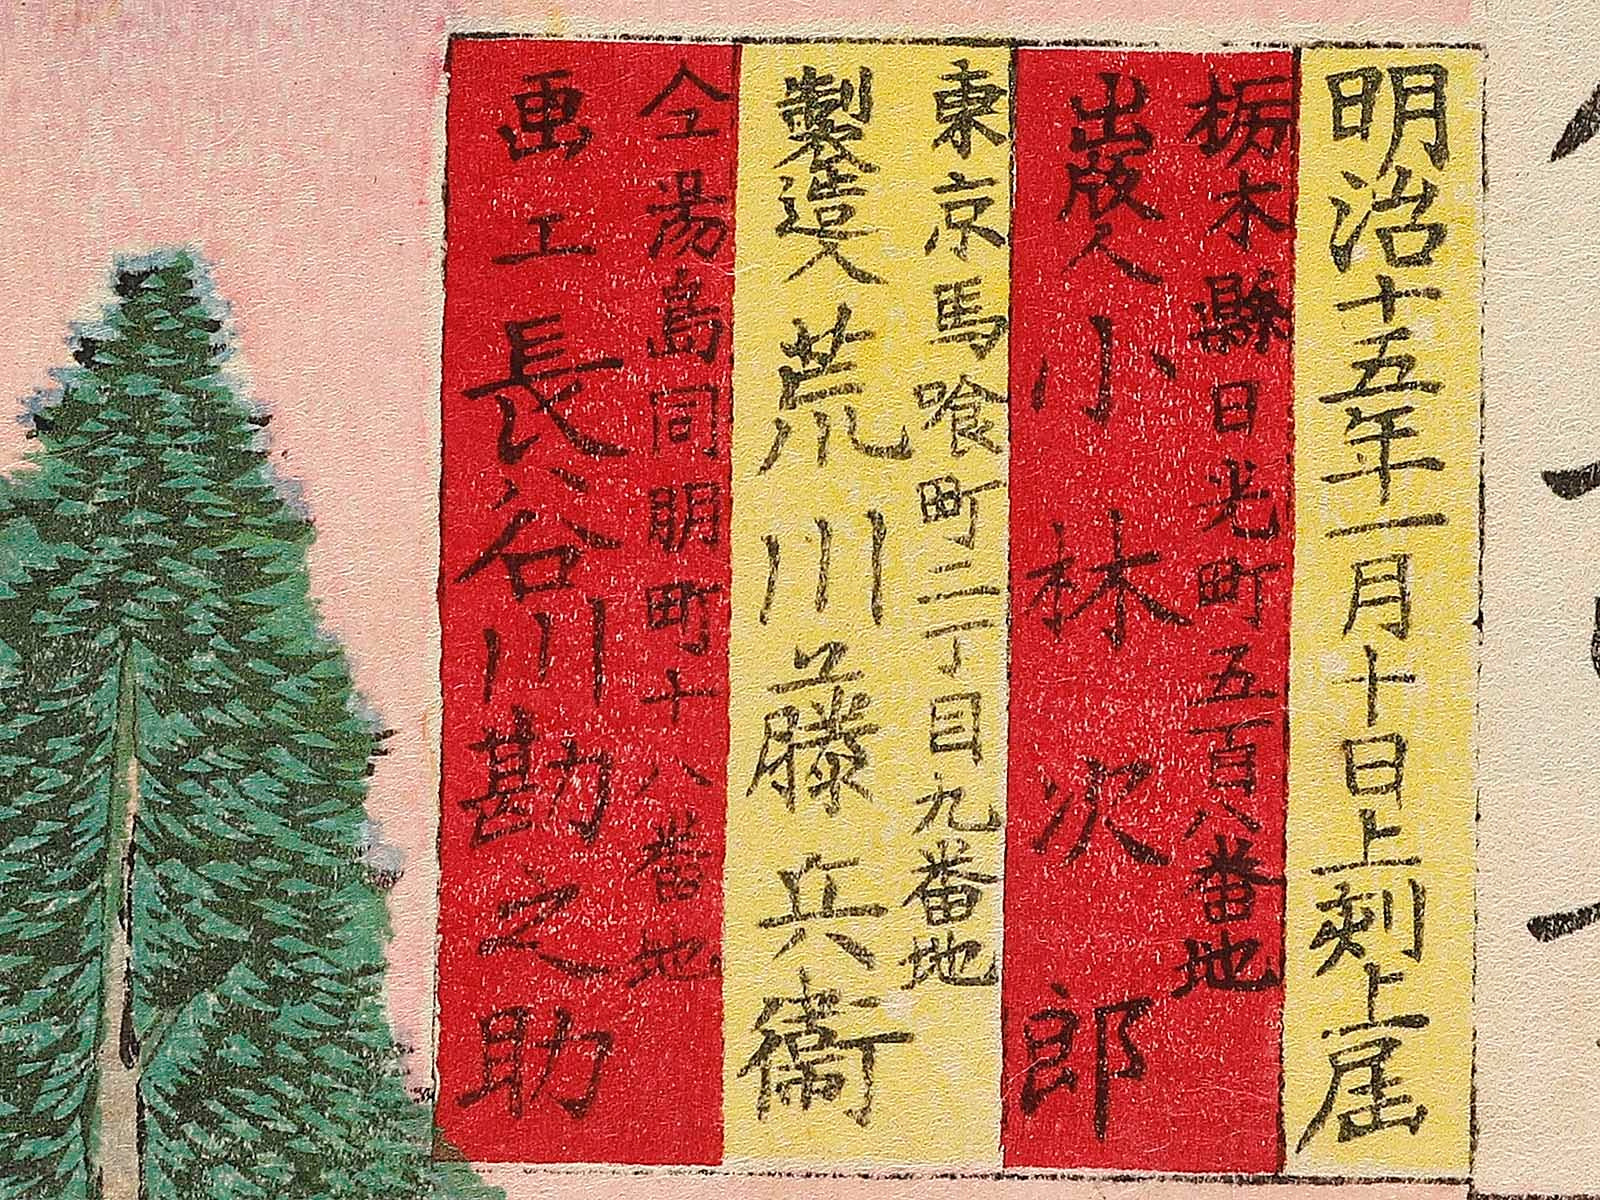 明治十五年一月十日上刻上届
栃木縣日光町五百八番地
出版人 小林次郎
東京馬喰町三丁目九番地
製造人 荒川藤兵衛
仝湯島同朋町十八番地
画工 長谷川勘之助